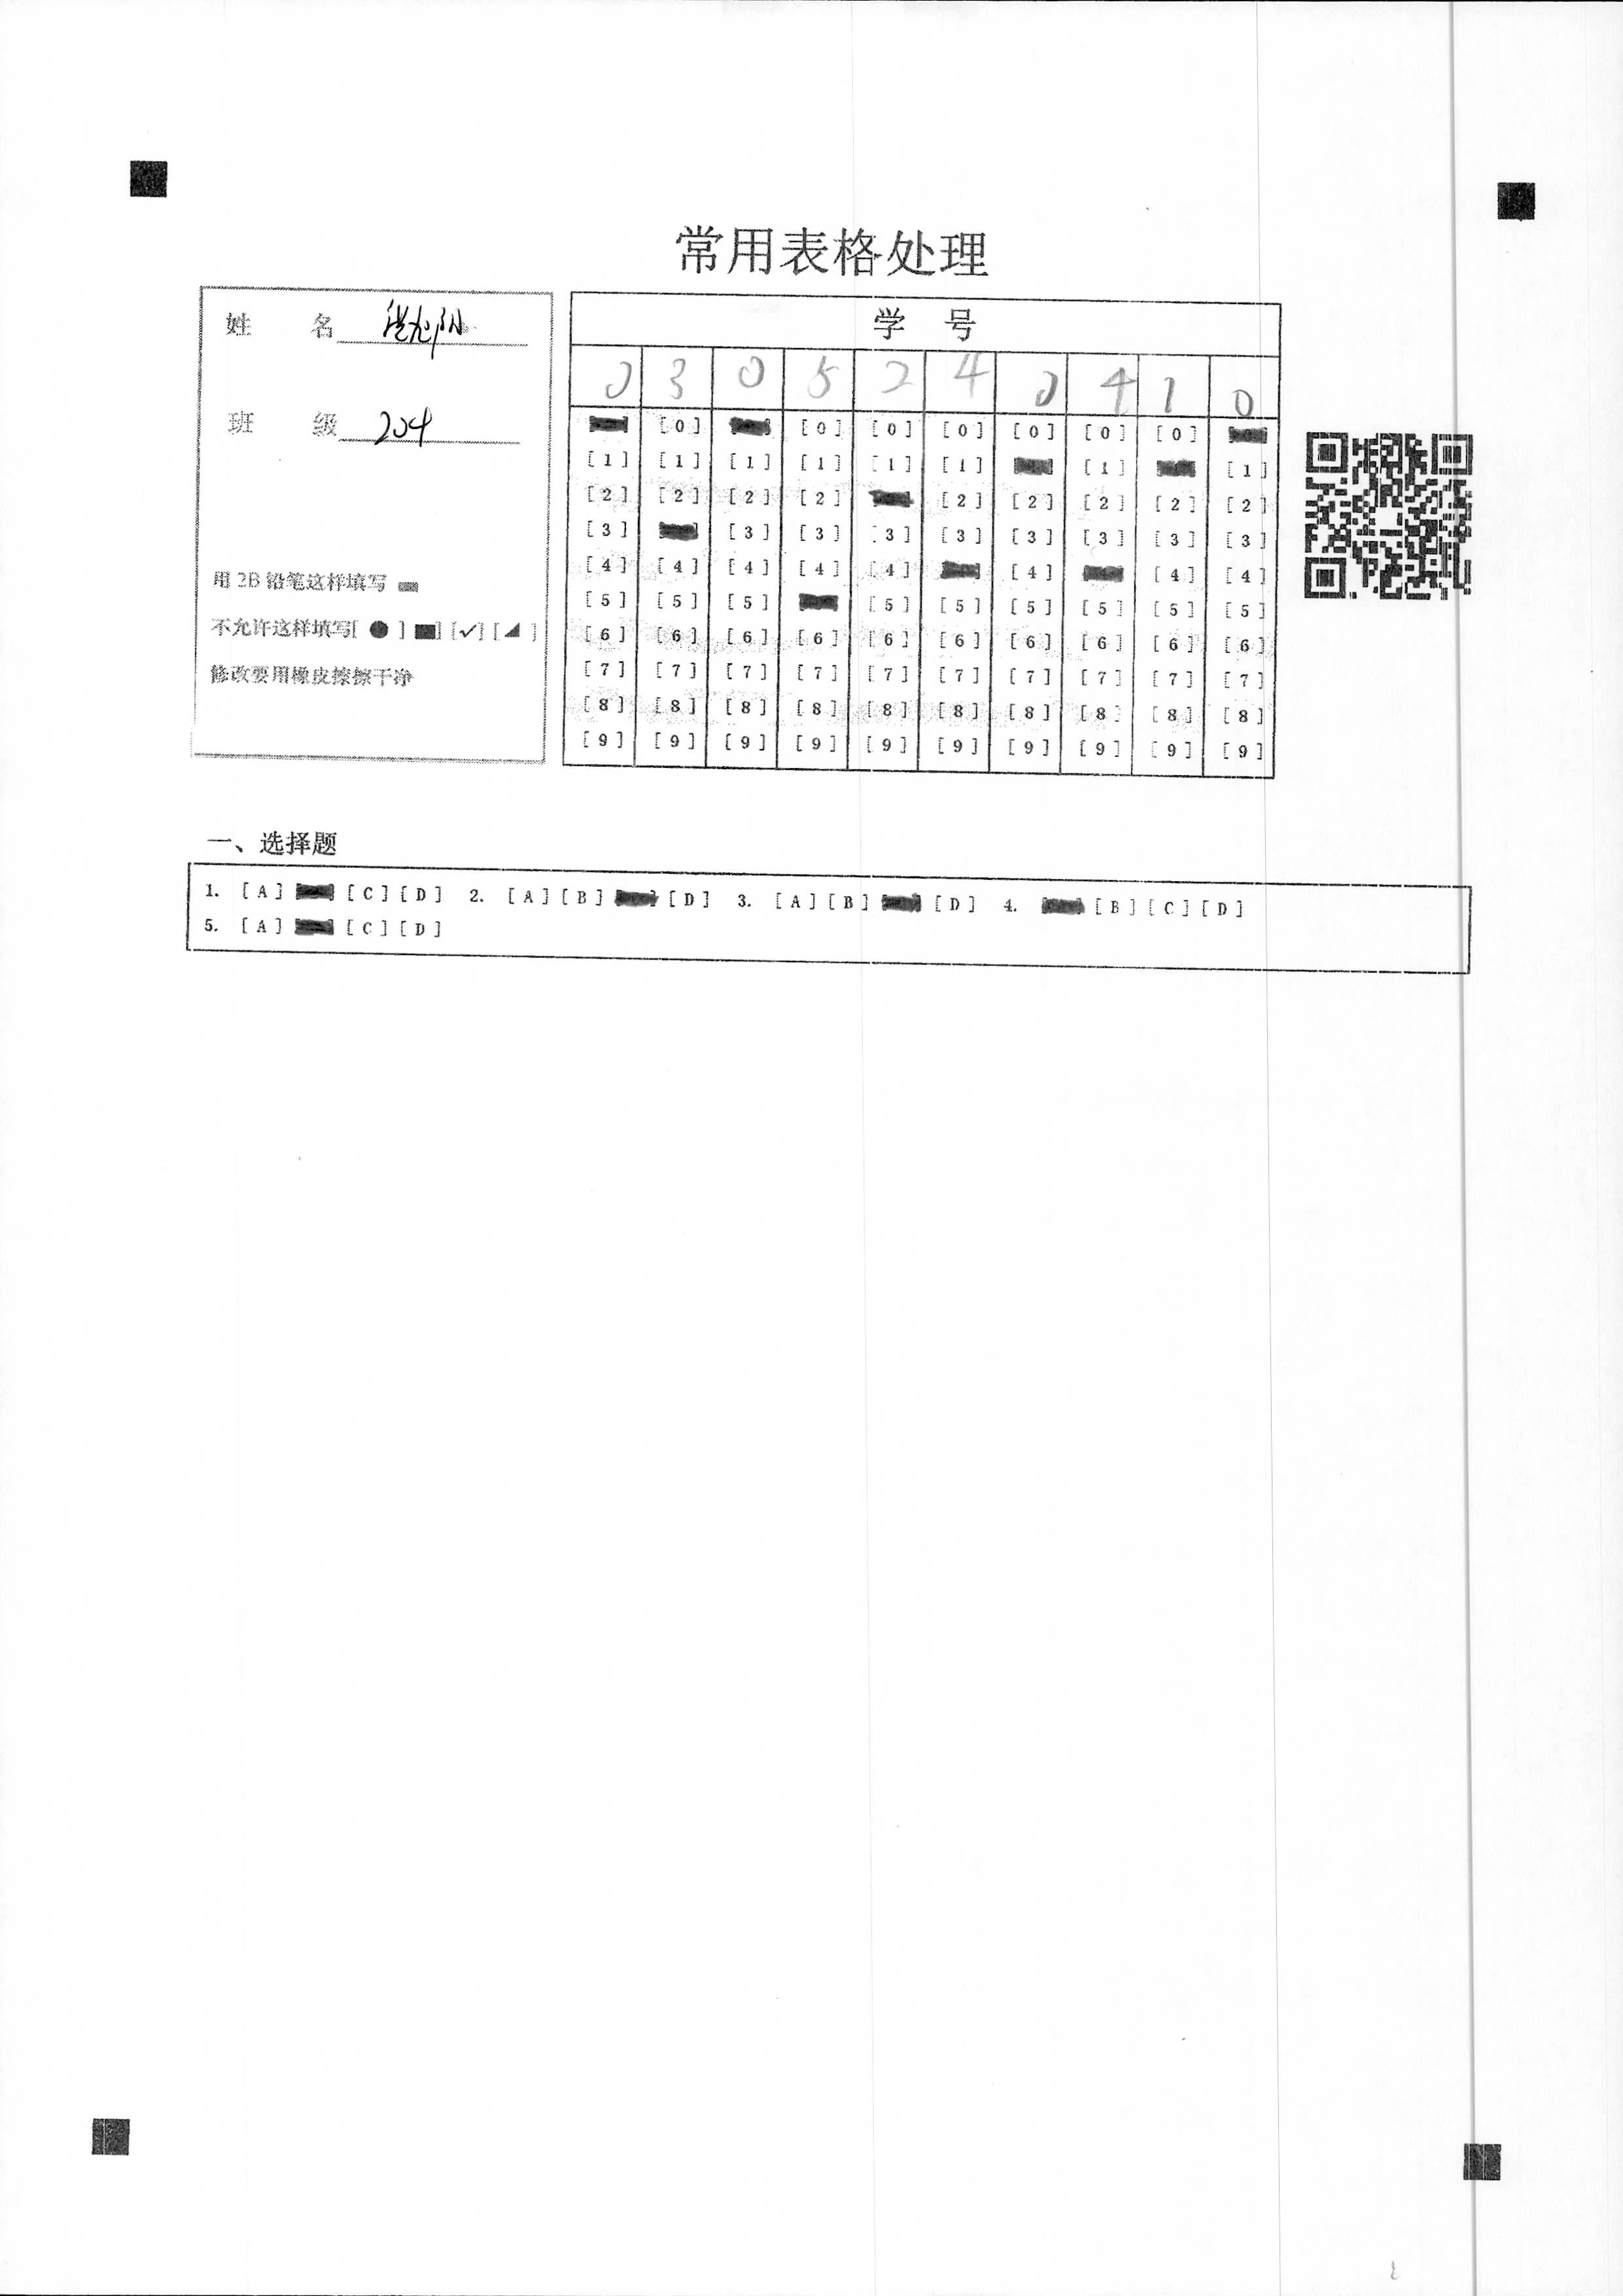 常用表格处理
姓 名
班 级 204
用 2B 铅笔这样填写
不允许这样填写[ ● ] ■] [✓] [◢ ]
修改要用橡皮擦擦干净
学 号
0 3 0 5 2 4 0 4 1 0
[0] [0] [0] [0] [0] [0] [0]
[1] [1] [1] [1] [1] [1] [1] [1]
[2] [2] [2] [2] [2] [2] [2] [2] [2]
[3] [3] [3] [3] [3] [3] [3] [3] [3]
[4] [4] [4] [4] [4] [4] [4] [4]
[5] [5] [5] [5] [5] [5] [5] [5] [5]
[6] [6] [6] [6] [6] [6] [6] [6] [6] [6]
[7] [7] [7] [7] [7] [7] [7] [7] [7] [7]
[8] [8] [8] [8] [8] [8] [8] [8] [8] [8]
[9] [9] [9] [9] [9] [9] [9] [9] [9] [9]
一、选择题
1. [A] [C] [D] 2. [A] [B] [D] 3. [A] [B] [D] 4. [B] [C] [D]
5. [A] [C] [D]